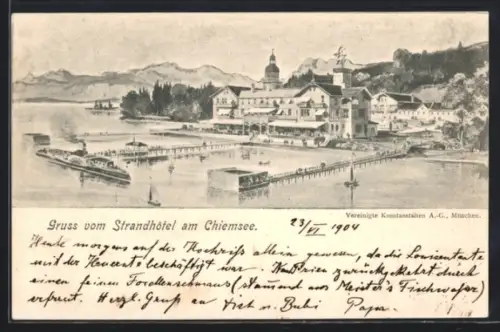 23/VI 1904
Vereinigte Kunstanstalten A.-G., München.
Gruss vom Strandhôtel am Chiemsee.
Heute morgens auf der Hochriss allein gewesen, da die
mit der beschäftigt war. zurückgekehrt durch
einen feinen Forellenschmaus (stammend aus Meister's Fischwasser)
erfreut. Herzl. Gruss an u. Bubi Papa.